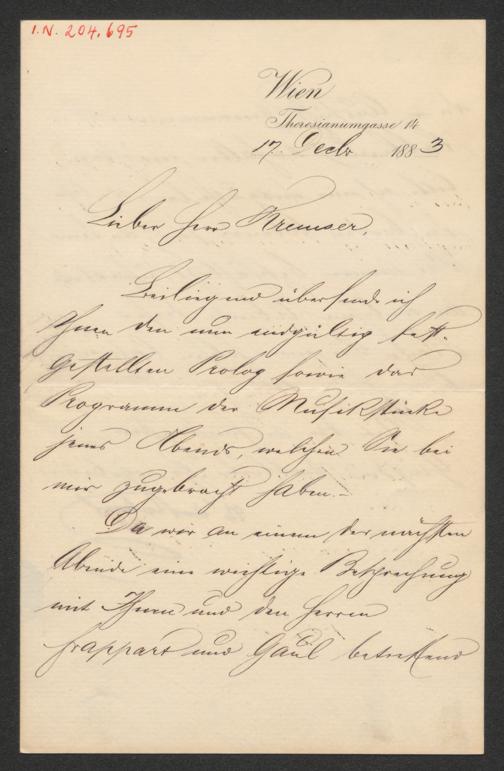 I.N. 204.695
Wien
Theresianumgasse 14
17. Decbr 1883
Lieber Herr Kremser,
Beiliegend übersende ich
Ihnen den nun endgültig fest-
gestellten Prolog sowie das
Programm der Musikstücke
jenes Abends, welchen Sie bei
mir zugebracht haben.-
Da wir an einem der nächsten
Abende eine wichtige Besprechung
mit Ihnen und den Herren
Frappart und Gaul betreffend